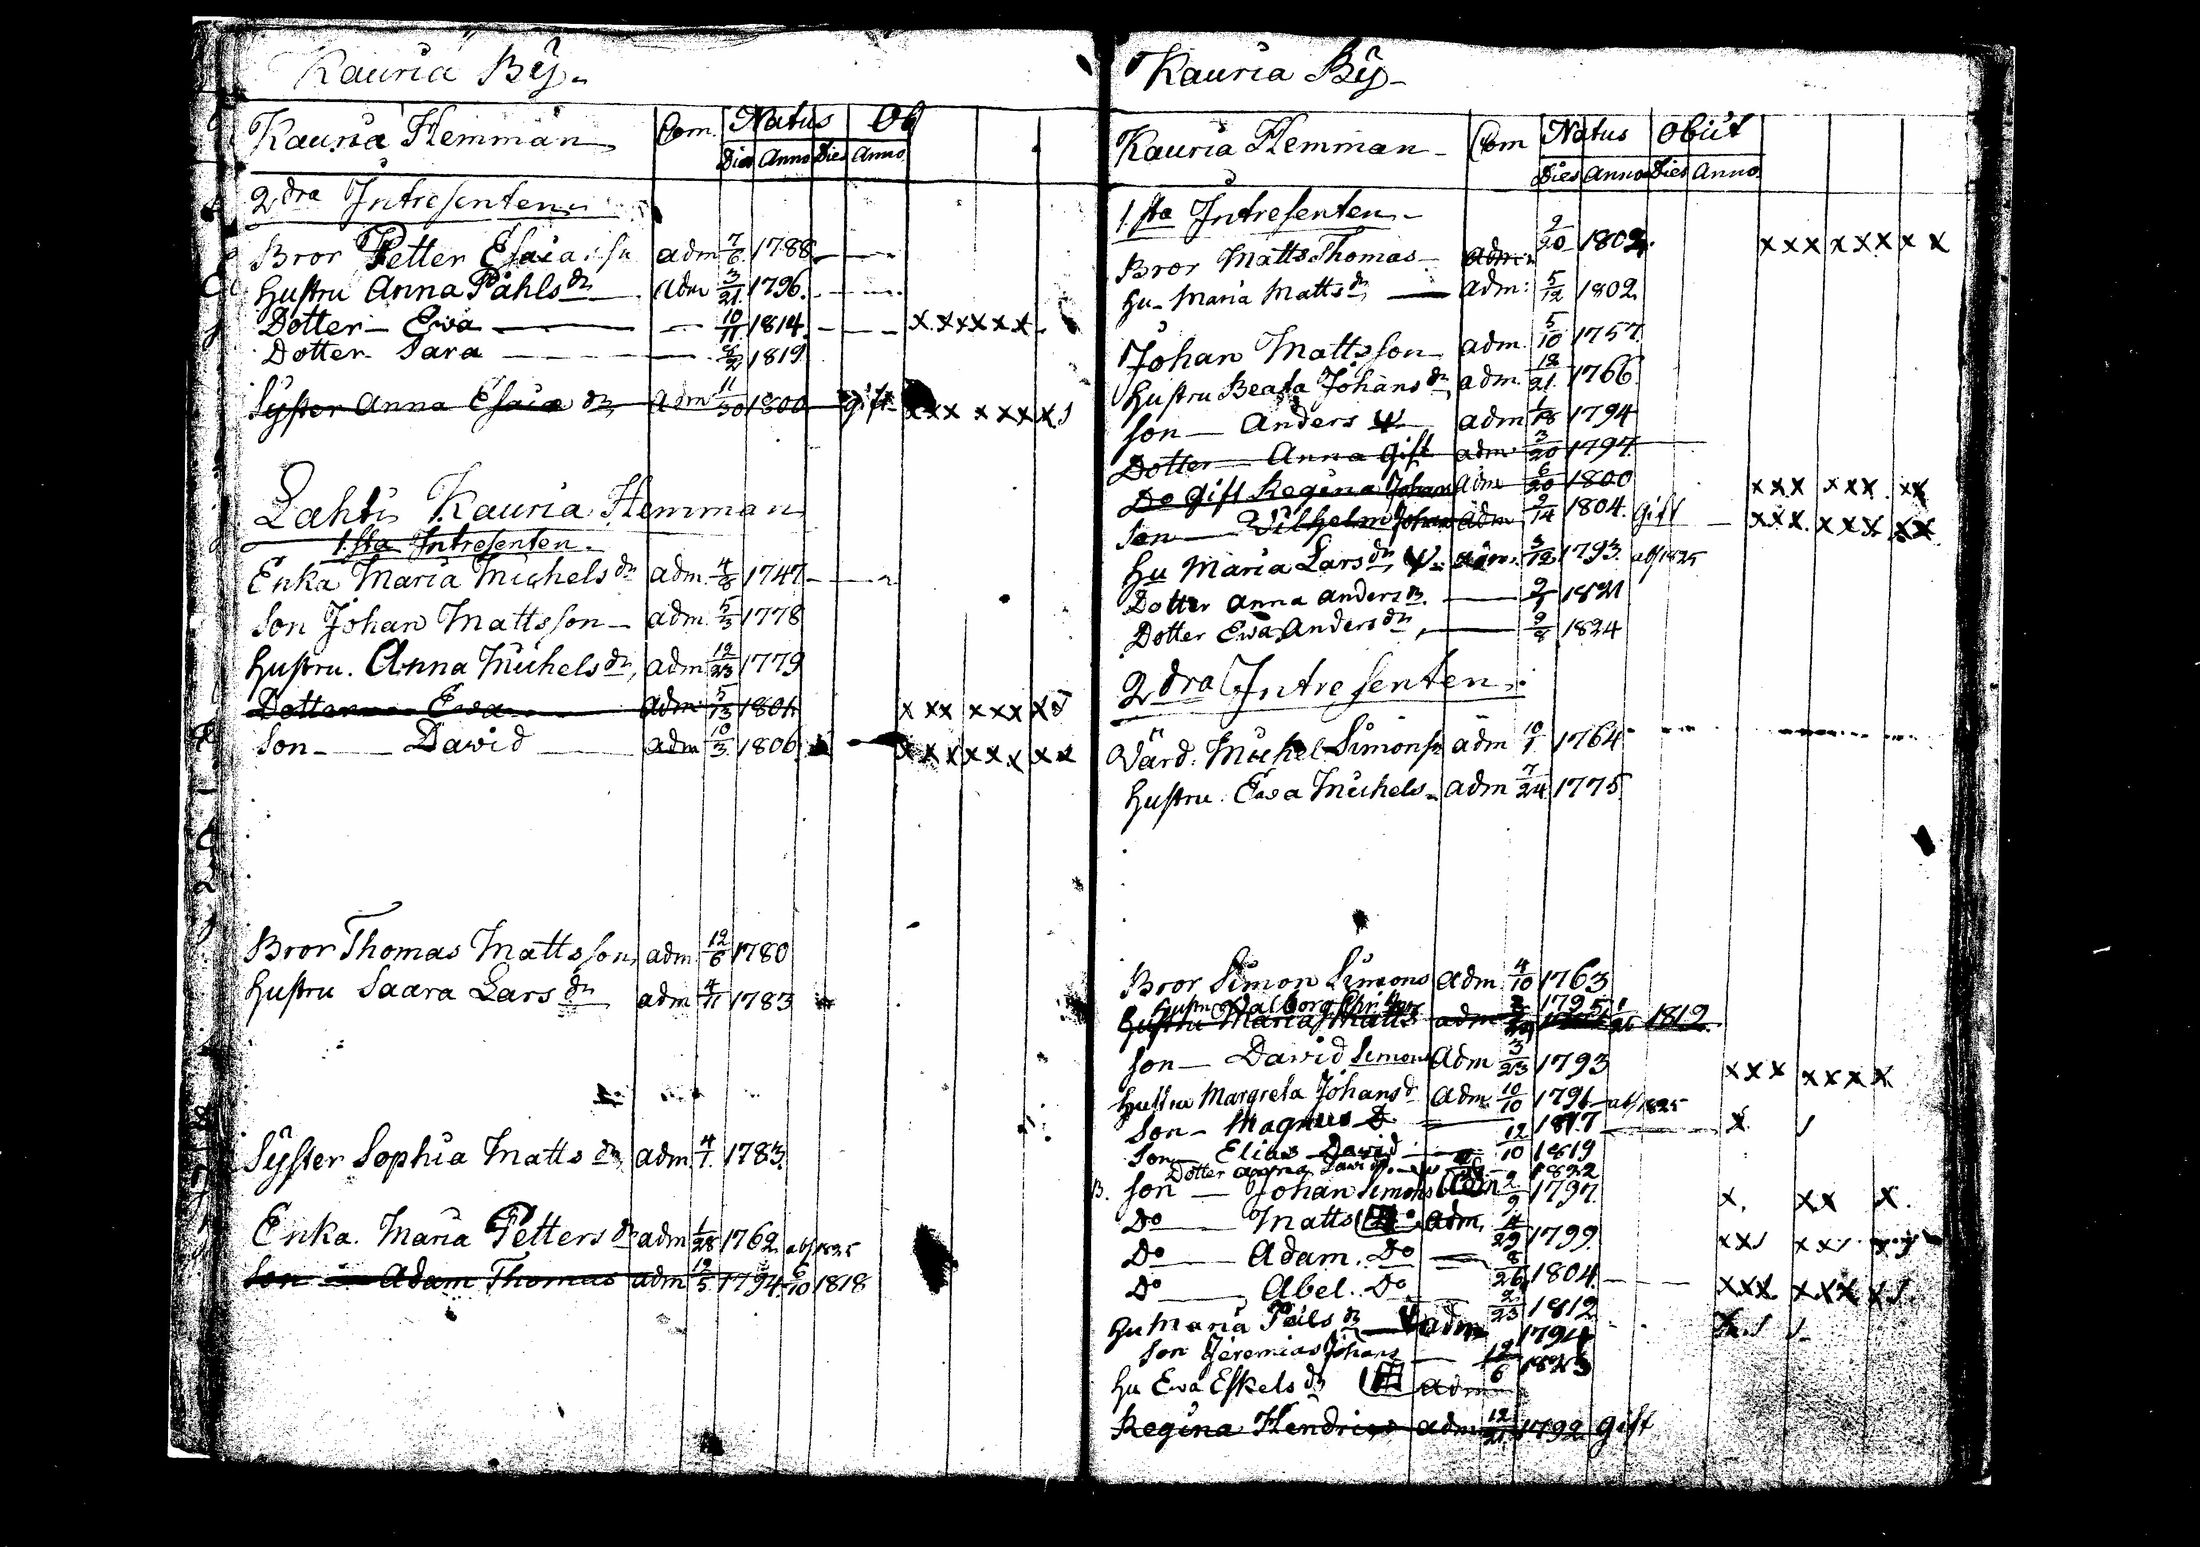 Kauria By.
Kauria Hemman Com. Natus Ob
Dies Anno Dies Anno
2dra Intresenten
Bror Petter Esaias sn adm 7/6 1788
Hustru Anna Påhlsdr adm 3/21 1796.
Dotter Ewa 10/11 1814 xxxxxx
Dotter Sara 1819
Syster Anna Esaiædr adm 11/30 1800 gift xxx xxxx
Lahti Kauria Hemman
1sta Intresenten.
Enka Maria Michelsdr adm. 4/8 1747
Son Johan Mattsson adm. 5/3 1778
Hustru. Anna Michelsdr, adm 12/23 1779
Dotter Ewa adm 5/13 1804
Son David adm 10/3 1806
Bror Thomas Mattsson adm 12/6 1780
Hustru Saara Larsdr adm 4/11 1783
Syster Sophia Mattsdr adm 4/7 1783
Enka. Maria Pettersdr adm 1/28 1762 abs 1825
Son Adam Thomas adm 12/5 1794 6/10 1818
Kauria By
Kauria Hemman Com Natus Obiit
Dies Anno Dies Anno
1sta Intresenten
Bror Matts Thomas adm 9/20 1802. xxx xxx x x
Hu Maria Mattsdr adm: 5/12 1802
Johan Mattsson adm. 5/10 1757
Hustru Beata Johansdr adm. 1766
Son Anders adm 1/18 1794
Dotter Anna gift adm 3/20 1797
Do gift Regina Johans adm 6/20 1800 xxx xxx xx
Son Wilhelm Johan adm 9/14 1804. gift xxx. xxx xx
Hu Maria Larsdr adm. 3/12 1793 abs 1825
Dotter Anna Andersdr. 1821
Dotter Ewa Andersdr 9/8 1824
2dra Intresenten
Värd. Michel Simonss adm 10/1 1764
Hustru. Ewa Michels adm 7/24 1775
Bror Simon Simons adm 4/10 1763
Hustru Walborg 1795
Hustru Maria Matts adm 1819
Son David Simons adm 3/23 1793 xxx xxxx
Hustru Margreta Johansdr adm 10/10 1791 abs 1825
Son Magnus D 1817 x
Son Elias David 12/10 1819
Dotter Anna David 1822
B. Son Johan Simons adm 2/9 1797 x. xx x.
Do Matts Do adm, 4/29 1799
Do Adam. Do 8/26 1804
Do Abel. Do 2/23 1812
Hu Maria Pålsdr adm 1794
Son Jeremias Johans 12/6 1823
Hu Ewa Eskelsdr adm
Regina Hendrics adm 12/21 1792 gift